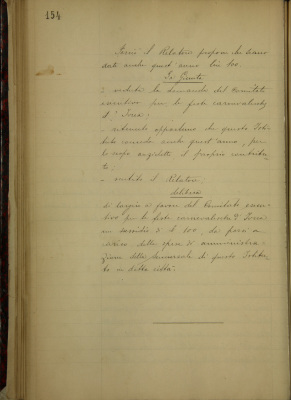 154
Il Relatore propone che siano
dati anche quest'anno lire 100.
La Giunta
- veduta la domanda del Comitato
esecutivo per le feste carnevalesche
d'Ivrea;
- ritenuto opportuno che questo Isti-
tuto conceda anche quest'anno, per
lo scopo anzidetto il proprio contribu-
to;
- sentito il Relatore;
delibera
di largire a favore del Comitato esecu-
tivo per le feste carnevalesche d'Ivrea
un sussidio di L. 100, da porsi a
carico delle spese di amministra-
zione della Succursale di questo Istitu-
to in detta città.